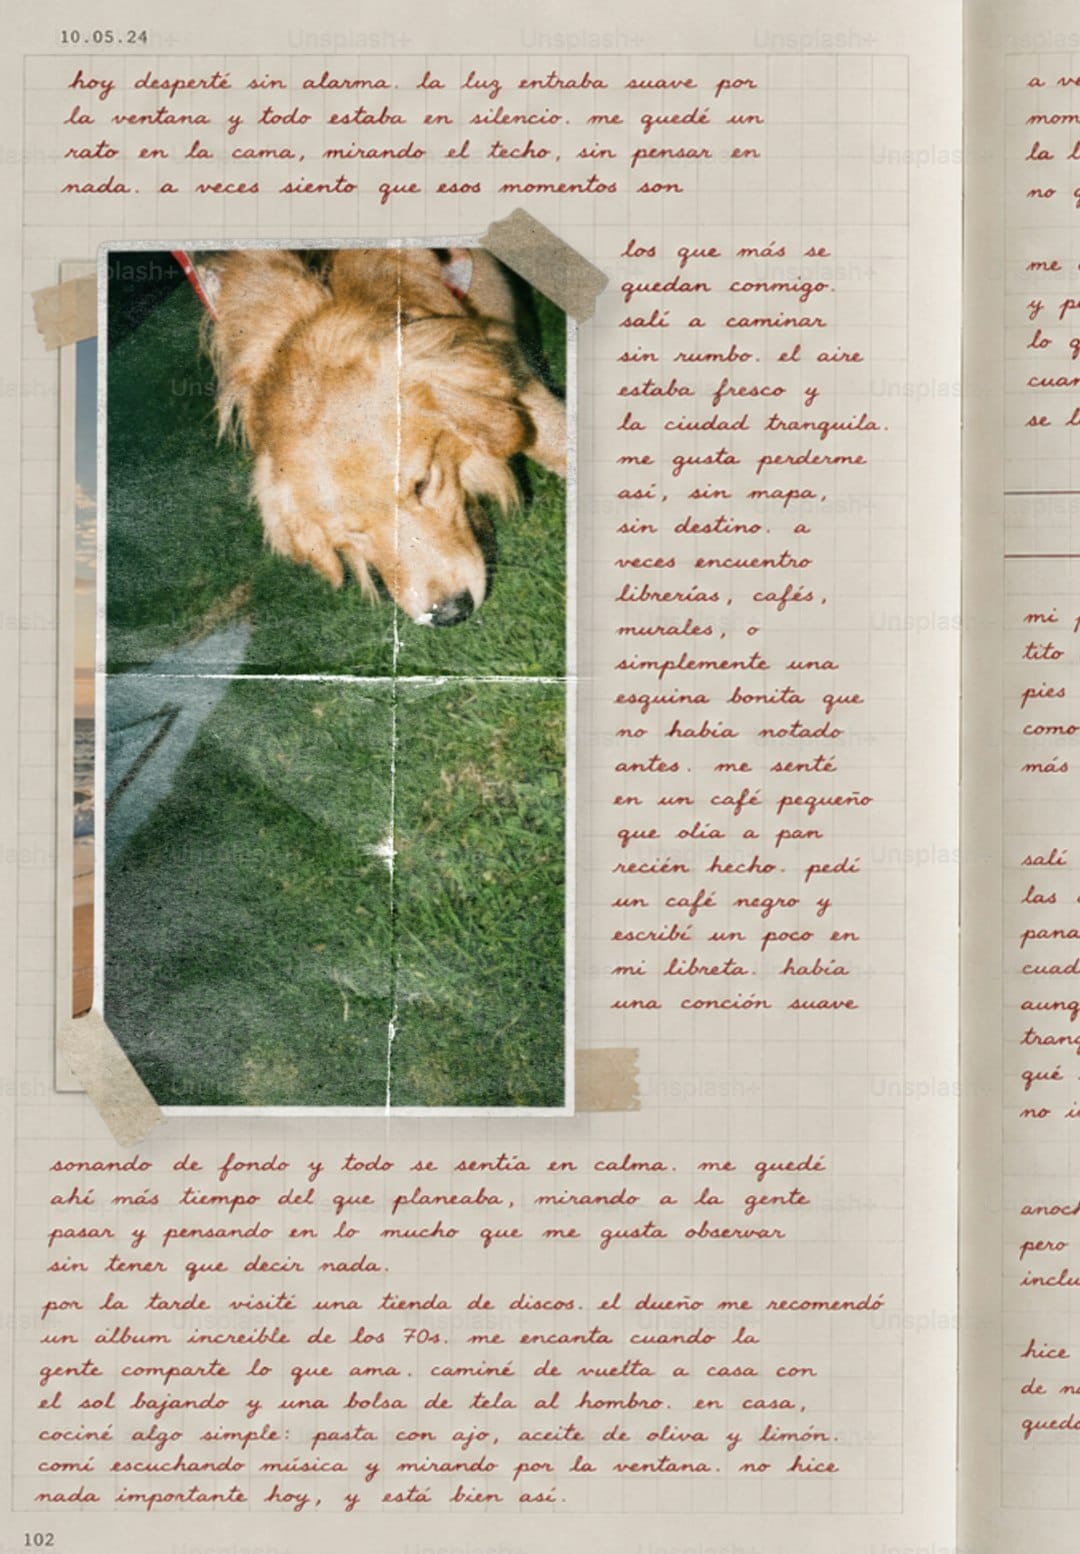 10.05.24
hoy desperté sin alarma. la luz entraba suave por
la ventana y todo estaba en silencio. me quedé un
rato en la cama, mirando el techo, sin pensar en
nada. a veces siento que esos momentos son
los que más se
quedan conmigo.
salí a caminar
sin rumbo. el aire
estaba fresco y
la ciudad tranquila.
me gusta perderme
así, sin mapa,
sin destino. a
veces encuentro
librerías, cafés,
murales, o
simplemente una
esquina bonita que
no había notado
antes. me senté
en un café pequeño
que olía a pan
recién hecho. pedí
un café negro y
escribí un poco en
mi libreta. había
una conción suave
sonando de fondo y todo se sentía en calma. me quedé
ahí más tiempo del que planeaba, mirando a la gente
pasar y pensando en lo mucho que me gusta observar
sin tener que decir nada.
por la tarde visité una tienda de discos. el dueño me recomendó
un álbum increíble de los 70s. me encanta cuando la
gente comparte lo que ama. caminé de vuelta a casa con
el sol bajando y una bolsa de tela al hombro. en casa,
cociné algo simple: pasta con ajo, aceite de oliva y limón.
comí escuchando música y mirando por la ventana. no hice
nada importante hoy, y está bien así.
102
a
la
no
me
y
lo
se
mi
tito
pies
como
más
salí
las
qué
no
pero
hice
de
Unsplash+